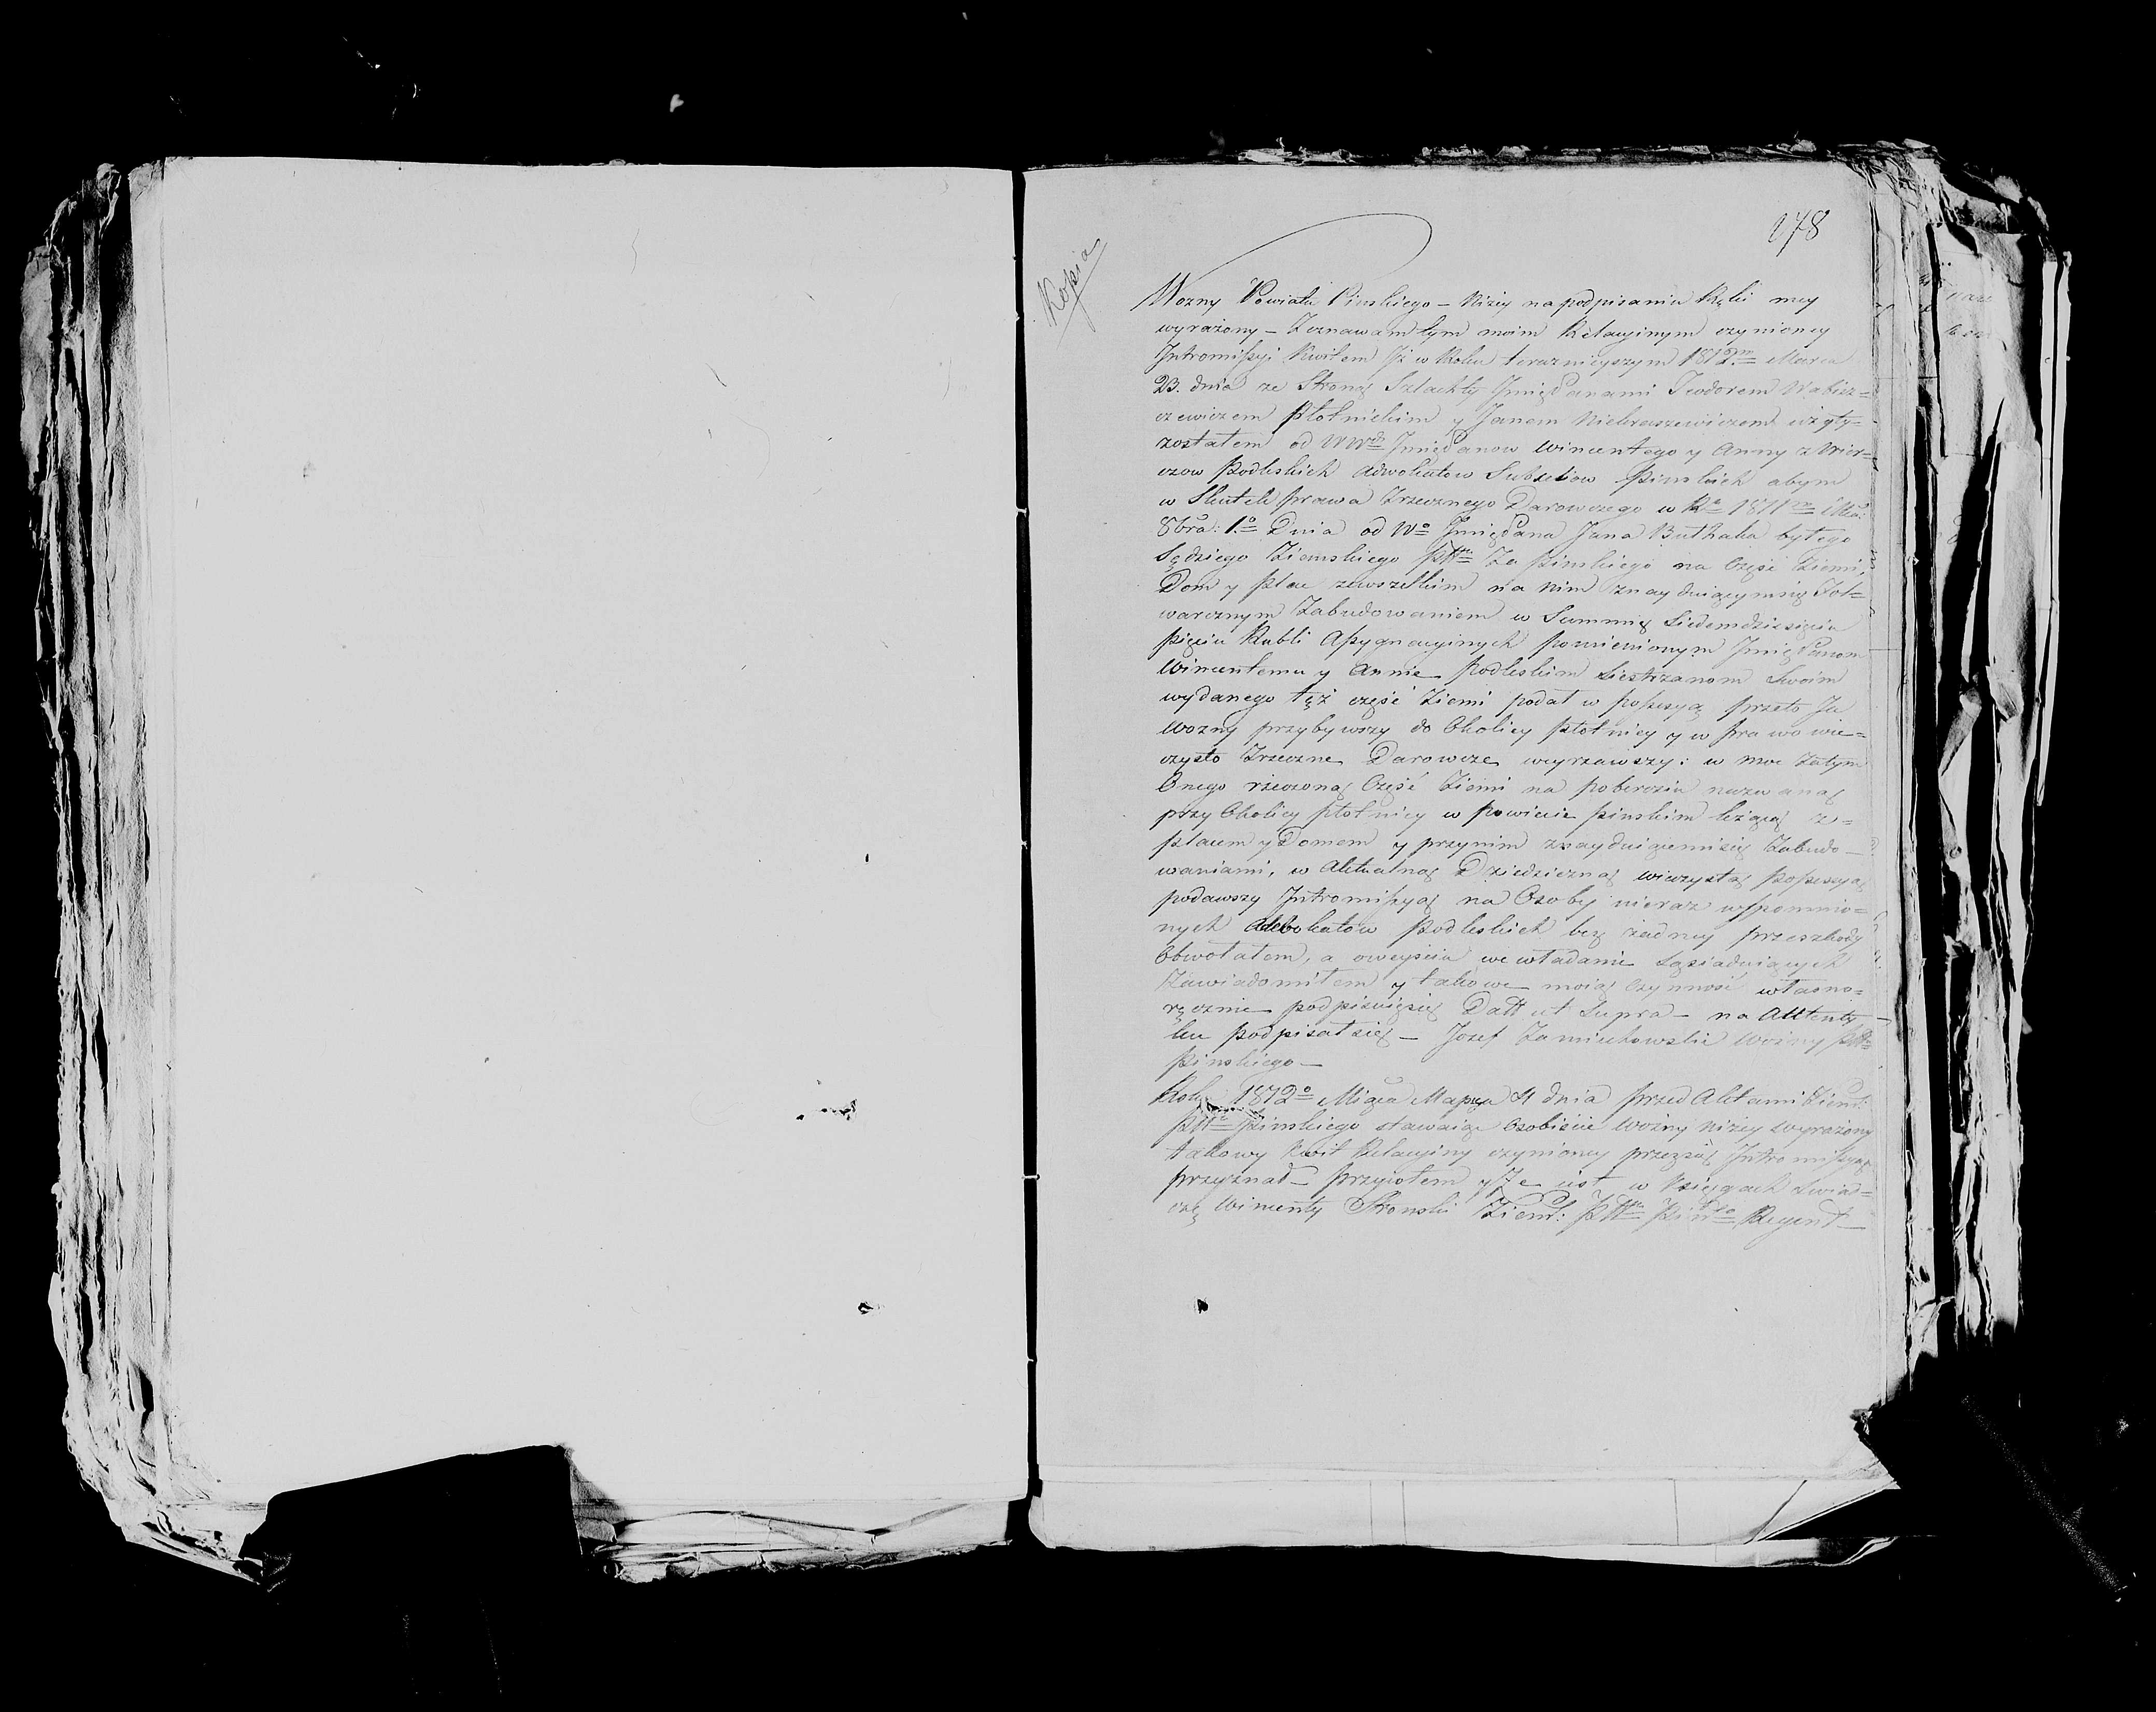 178
Kopia
Wozny Powiatu Pinskiego – Niżey na podpisaniu Ręki mey
wyrażony – Zeznawam tym moim Relacyinym czynioney
Intromissyi Kwitem Iż w Roku teraznieyszym 1812m Marca
23. dnia ze Stroną Szlachtą Jmię Panami Teodorem Nabisz=
czewiczem Płotnickim y Janem Niekraszewiczem użyty=
zostałem od WW Jmię Panow Wincentego y Anny z Wier=
czow Podleskich Adwokatow Subseliow Pinskich abym
w Skutek prawa Zrzecznego Darowczego w 1811
8bra: 1o Dnia od Wo Jmię Pana Jana Buthaka byłego
Sędziego Ziemskiego Pttu Za Pinskiego na Część Ziemi,
Dom y Plac zewszelkim na nim znayduiącymsię Fol=
warcznym Zabudowaniem w Summię Siedemdziesięciu
pięciu Rubli Assygnacyinych pomienionym Jmię Panom
Wincentemu y Annie Podleskim Siestrzanom Swoim
wydanego też część Ziemi podał w possesyą przeto Ja
Wozny przybywszy do Okolicy Płotnicy y w prawo wie=
czysto Zrzeczne Darowcze weyrzawszy: w moc Zatym
Onego rzeczoną Część Ziemi na Pobereziu nazwaną
przy Okolicy Płotnicy w Powiecie Pinskim leżącą z=
placem y Domem y przynim znayduiącemisię Zabudo=
waniami, w Aktualną Dziedziczną wieczystą Possesyą
podawszy Intromissyą na Osoby nieraz wspomnio=
nych Adwokatow Podleskich bez żadney przeszkody
Obwołałem, a oweyścia we władanie Sąsiaduiących
Zawiadomiłem y takowe moią Czynność własno=
ręcznie podpisuięsię Datt ut Supra – na Attenty
ku podpisał się – Jozef Wozny Pttu
Pinskiego –
Roku 1812o Miąca Marca dnia przed Aktami Ziem:
Pttu Pinskiego stawaiąc Osobiscie Wozny niżey wyrażony
takowy Kwit Relacyiny czynioney przezsię Intromissyi
przyznał – przyiętem y Że iest w Xsięgach Swiad=
czę Wincenty Skonski Ziem: Pttu Pingo Regent –